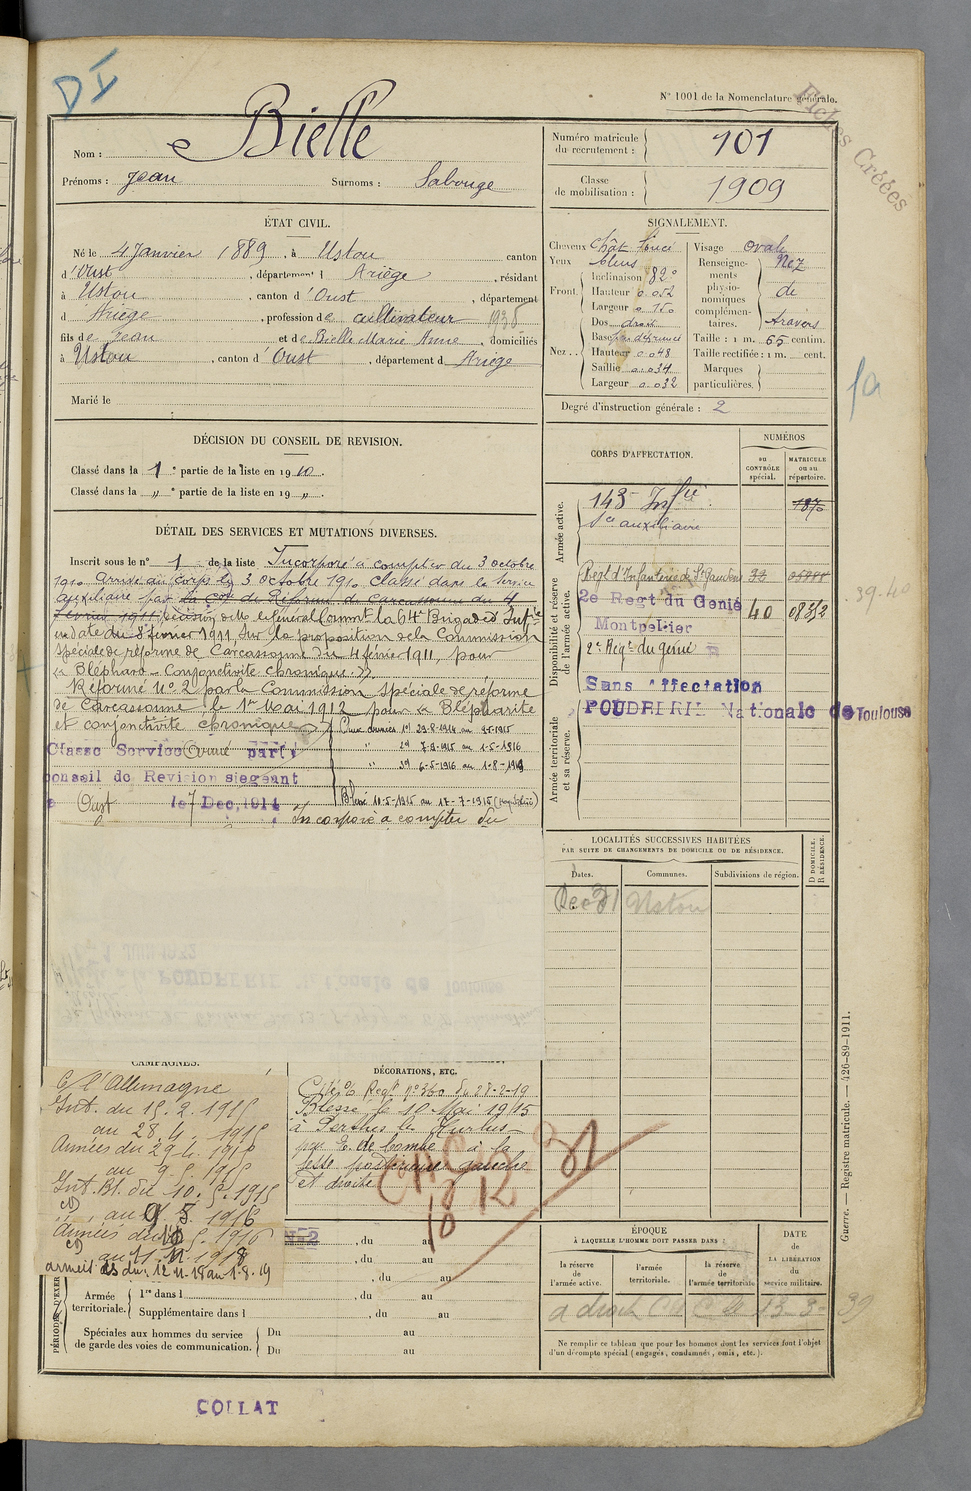 DI
N° 1001 de la Nomenclature générale.
Fiches Créées
Nom : Bielle
Prénoms : Jean Surnoms : Sabouge
Numéro matricule du recrutement : 101
Classe de mobilisation : 1909
ÉTAT CIVIL.
Né le 4 Janvier 1889, à Ustou canton
d'Oust, département d Ariège, résidant
à Ustou, canton d'Oust, département
d Ariège, profession de cultivateur 1935
fils de Jean et de Bielle Marie Anne, domiciliés
à Ustou, canton d Oust, département d Ariège
Marié le
SIGNALEMENT.
Cheveux chât foncé
Yeux bleus
Front. Inclinaison 82°
Hauteur 0.052
Largeur 0.150
Nez.. Dos droit
Base
Hauteur 0.048
Saillie 0.034
Largeur 0.032
Visage ovale
Renseignements physionomiques complémentaires. Nez de travers
Taille : 1 m. 65 centim.
Taille rectifiée : 1 m. cent.
Marques particulières.
Degré d'instruction générale : 2
1a
DÉCISION DU CONSEIL DE REVISION.
Classé dans la 1re partie de la liste en 1910.
Classé dans la " e partie de la liste en 19 ".
DÉTAIL DES SERVICES ET MUTATIONS DIVERSES.
Inscrit sous le n° 1 de la liste Incorporé à compter du 3 octobre
1910 arrivé au corps le 3 octobre 1910 classé dans le service
auxiliaire par la Con de Réforme de Carcassonne du 4
février 1911 décision de Mr le Général Commt la 64e Brigade d'Infie
en date du 8 février 1911, sur la proposition de la Commission
spéciale de réforme de Carcassonne du 4 février 1911, pour
« Blépharo-Conjonctivite chronique. »
Réformé N° 2 par la Commission spéciale de réforme
de Carcassonne le 1er Mai 1912 pour « Blépharite
et conjonctivite chronique »
Classé Service Armé par le
Conseil de Revision siégeant
à Oust le 7 Dec. 1914
Incorporé à compter du
CORPS D'AFFECTATION.
NUMÉROS
au CONTRÔLE spécial.
MATRICULE ou au répertoire.
Armée active.
143e Infie
Sce auxiliaire
Disponibilité et réserve de l'armée active.
Regt d'Infanterie de St Gaudens
2e Regt du Génie 40 08352
Montpellier
2e Regt du Génie
Sans Affectation
POUDRERIE Nationale de Toulouse
39-40
Armée territoriale et sa réserve.
LOCALITÉS SUCCESSIVES HABITÉES
PAR SUITE DE CHANGEMENTS DE DOMICILE OU DE RÉSIDENCE.
Dates. Communes. Subdivisions de région. D DOMICILE. R RÉSIDENCE.
Dec 31 Ustou
CAMPAGNES.
C l'Allemagne
Int. du 15.2.1915
au 28.4.1915
Armées du 29.4.1915
au 9.5.1915
Int. Bl. du 10.5.1915
au 9.5.1916
Armées du 10.5.1916
au 11.11.1918
armées du 12.11.18 au 1.8.19
DÉCORATIONS, ETC.
Cité O/ Regt n° 360 du 28-2-19
Blessé le 10 Mai 1915
à Perthes les Hurlus
par E. de bombe à la
fesse postérieure gauche
et droite
31
, du au
, du au
, du au
Armée territoriale. 1re dans l , du au
Supplémentaire dans l , du au
Spéciales aux hommes du service de garde des voies de communication. Du au
Du au
ÉPOQUE
À LAQUELLE L'HOMME DOIT PASSER DANS :
la réserve de l'armée active.
l'armée territoriale.
la réserve de l'armée territoriale
DATE de LA LIBÉRATION du service militaire.
a droit C C le 13-3-39
Ne remplir ce tableau que pour les hommes dont les services font l'objet
d'un décompte spécial (engagés, condamnés, omis, etc.).
Guerre. — Registre matricule. — 426-89-1911.
COLLAT